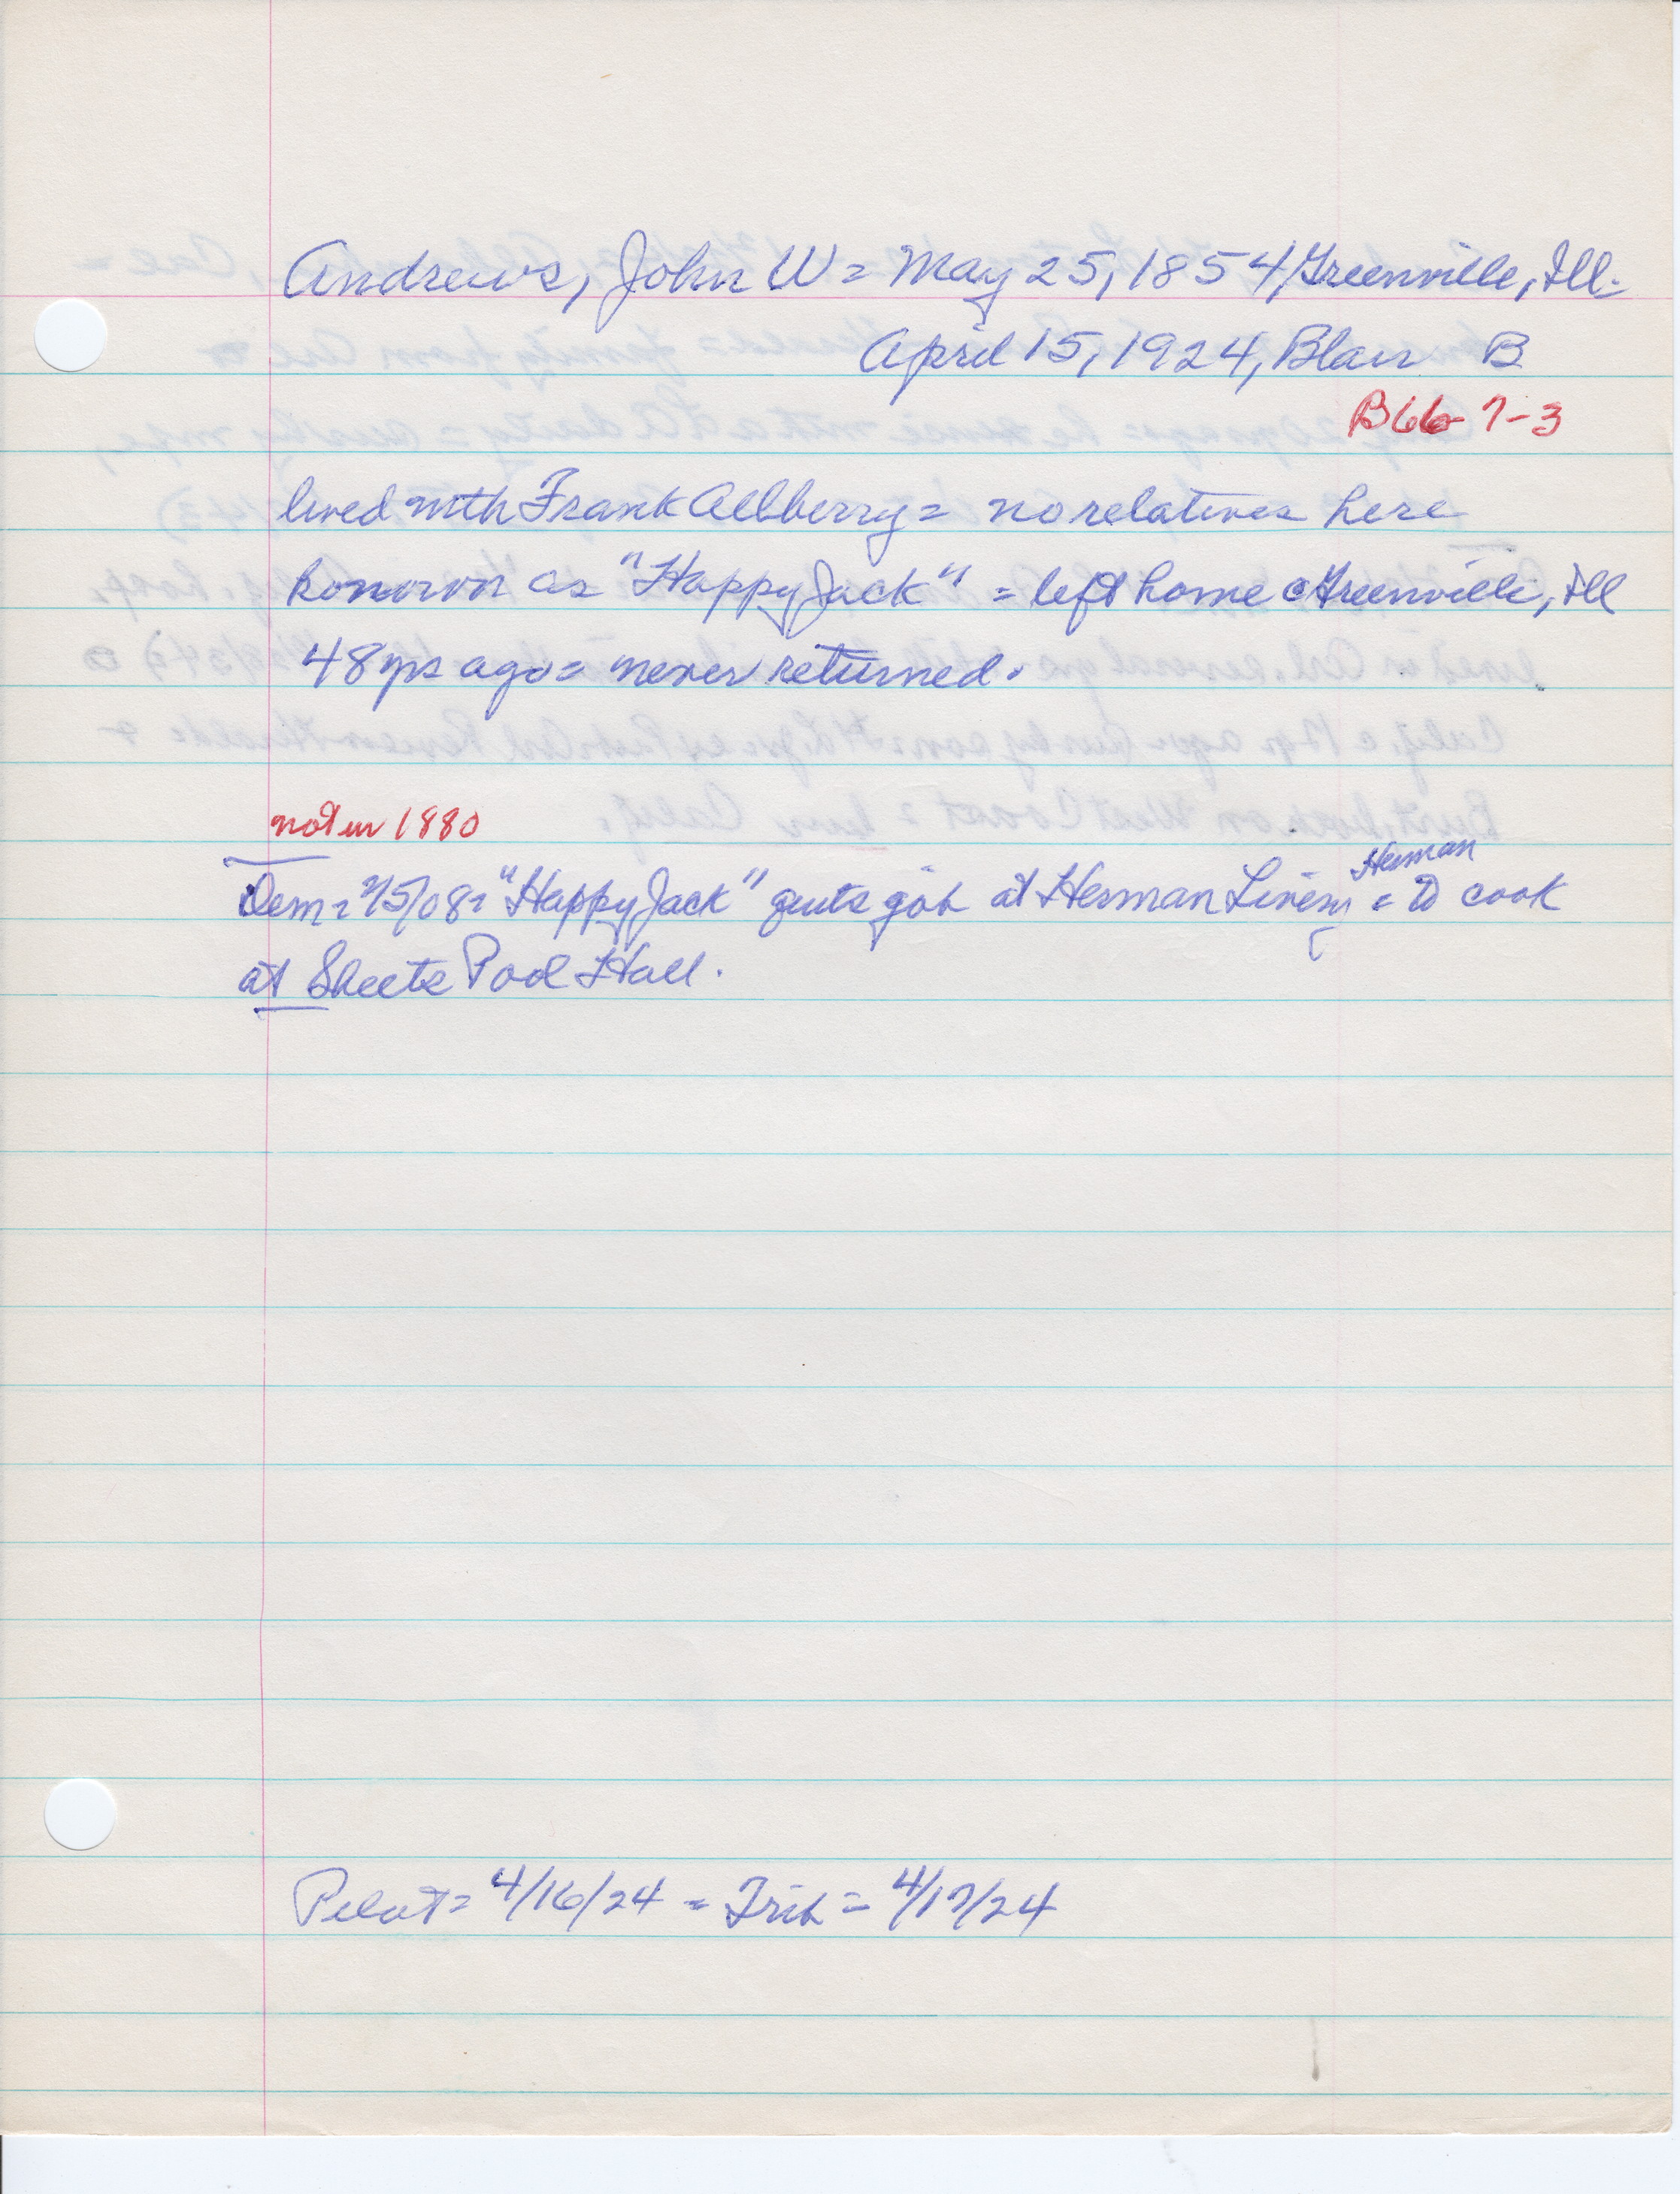 Andrews, John W = May 25, 1854, Greenville, Ill.
April 15, 1924, Blair B
B66-7-3
lived with Frank Allberry = no relatives here
known as "Happy Jack" = left home @ Greenville, Ill
48 yrs ago = never returned.
not in 1880
Dem = 2/5/08 = "Happy Jack" quits job at Herman Livery = to cook
Herman
at Sheets Pool Hall.
Pilot = 4/16/24 = Trib = 4/17/24